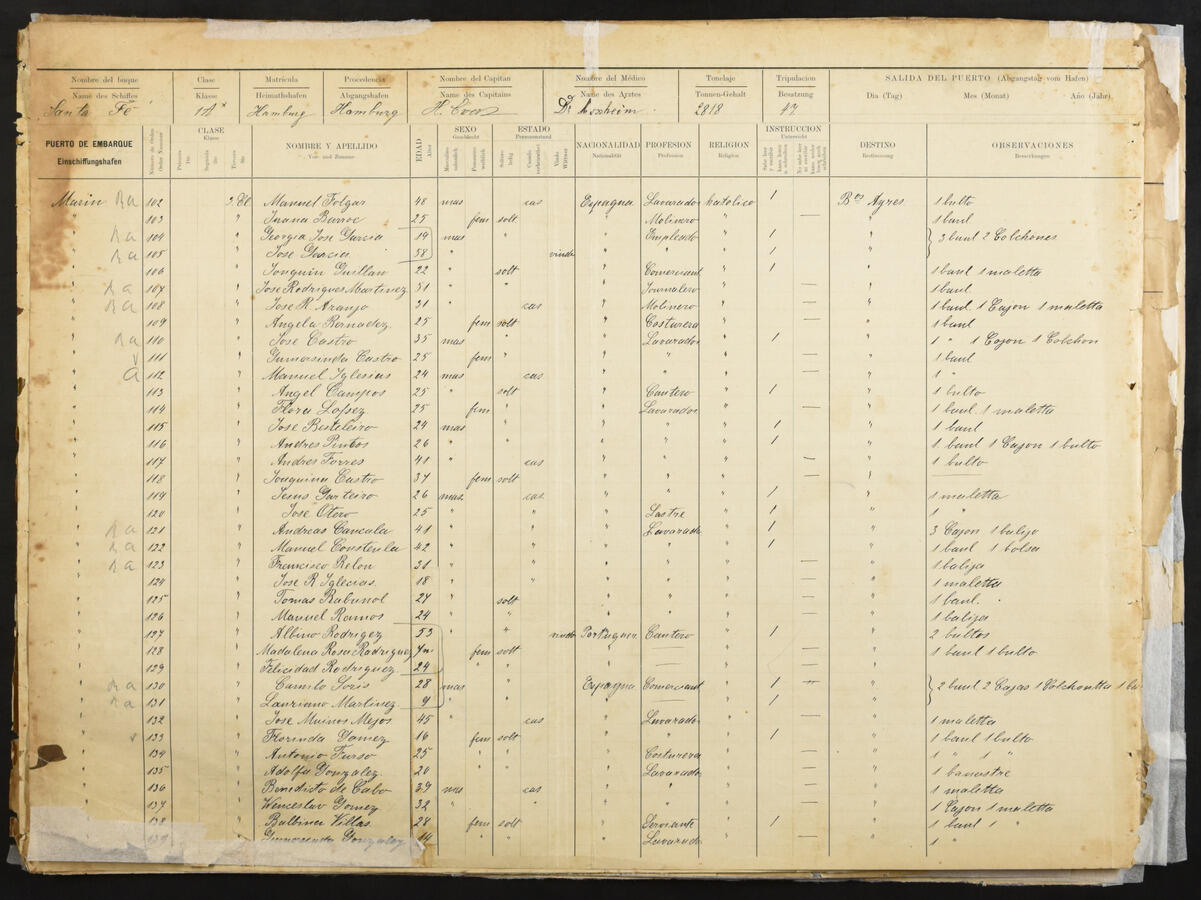 Nombre del buque Clase Matrícula Procedencia Nombre del Capitan Nombre del Médico Tonelaje Tripulacion SALIDA DEL PUERTO (Abgangstag vom Hafen)
Name des Schiffes Klasse Heimathshafen Abgangshafen Name des Capitains Name des Arztes Tonnen-Gehalt Besatzung Dia (Tag) Mes (Monat) Año (Jahr)
Santa Fé 1A Hamburg Hamburg Dr 2818 47
PUERTO DE EMBARQUE CLASE NOMBRE Y APELLIDO EDAD SEXO ESTADO NACIONALIDAD PROFESION RELIGION INSTRUCCION DESTINO OBSERVACIONES
Einschiffungshafen Klasse Vor- und Zuname Alter Geschlecht Personenstand Nationalität Profession Religion Unterricht Bestimmung Bemerkungen
Marin Ra 102 Manuel Folgar 48 mas cas Espagna Lavarador katolico / Bos Ayres 1 bulto
" 103 " Juana Barroc 25 fem solt " Molinero " — " 1 baul
" Ra 104 " Georgia Jose Garcia 19 mas " " Empleado " / " 3 baul 2 Colchones
" Ra 105 " Jose Garcia 58 " viudo " " " / "
" 106 " Joaquin Guillan 22 " solt " Comerciant " / " 1 baul 1 maletta
" Ra 107 " Jose Rodrigues Martinez 51 " " " Journalero " — " 1 baul
" Ra 108 " Jose R. Araujo 31 " cas " Molinero " — " 1 baul 1 Cajon 1 maletta
" 109 " Angela Bernadez 25 fem solt " Costurera " — " 1 baul
" Ra 110 " Jose Castro 35 mas " " Lavarador " / " 1 " 1 Cajon 1 Colchon
" v 111 " Gumersinda Castro 25 fem " " " " — " 1 baul
" a 112 " Manuel Iglesias 24 mas cas " " " — " 1 "
" 113 " Angel Campos 25 " solt " Cantero " / " 1 bulto
" 114 " Flora Lopez 25 fem " " Lavarador " — " 1 baul 1 maletta
" 115 " Jose Besteleiro 24 mas " " " " / " 1 baul
" 116 " Andres Pintos 26 " " " " " / " 1 baul 1 Cajon 1 bulto
" 117 " Andres Torres 41 " cas " " " — " 1 bulto
" 118 " Joaquina Castro 37 fem solt " " " — " —
" 119 " Jesus Garteiro 26 mas. cas. " " " / " 1 maletta
" 120 " Jose Otero 25 " " " Sastre " / " 1 "
" Ra 121 " Andreas Cancala 41 " " " Lavarado " / " 3 Cajon 1 balijo
" Ra 122 " Manuel Constenla 42 " " " " " / " 1 baul 1 bolsa
" Ra 123 " Francisco Relon 31 " " " " " — " 1 balija
" 124 " Jose R Iglecias 18 " " " " " — " 1 maletta
" 125 " Tomas Rabunol 27 " solt " " " — " 1 baul.
" 126 " Manuel Ramos 24 " " " " " — " 1 balija
" 127 " Albino Rodrigez 53 " " Portugues Cantero " / " 2 bultos
" 128 " Madalena Rosa Rodriguez fem solt " — " — " 1 baul 1 bulto
" 129 " Felicidad Rodriguez 24 " " " — " — "
" Ra 130 " Camilo 28 mas " Espagna Comerciant " / " 2 baul 2 Cajas 1 Colchontta 1
" Ra 131 " Lauriano Martinez 9 " " " — " / "
" 132 " Jose Muinos Mejos 45 " cas " Lavarado " — " 1 maletta
" v 133 " Florinda Gomez 16 fem solt " " " / " 1 baul 1 bulto
" 134 " Antonio Furso 25 " " " Costurera " — " 1 " 1 "
" 135 " Adolfa Gonzalez 20 " " " Lavarado " — " 1 banastre
" 136 " Benedicto de Cabo 39 mas cas " " " — " 1 maletta
" 137 " Wenceslav Gomez 32 " " " " " — " 1 Cajon 1 maletta
138 " Balbina Villas 28 fem solt " Serviante " / " 1 baul 1 "
139 " Gonzalez 14 " " " Lavarado " — " 1 "